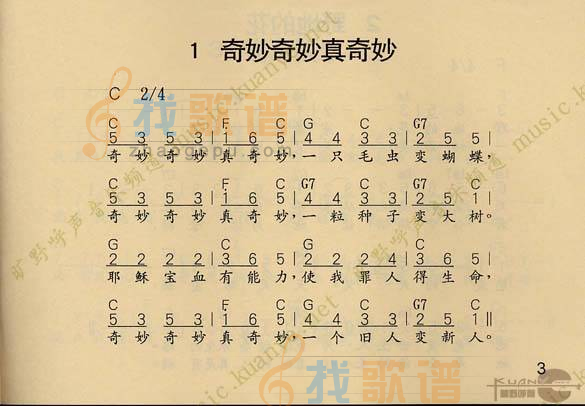 1 奇妙奇妙真奇妙
C 2/4
C F C G C G7
5 3 5 3 | 1 6 5 | 4 4 3 3 | 2 5 5 |
奇妙奇妙真奇妙,一只毛虫变蝴蝶,
C F C G7 C G7 C
5 3 5 3 | 1 6 5 | 4 4 3 3 | 2 5 1 |
奇妙奇妙真奇妙,一粒种子变大树。
G C G
2 2 2 2 | 3 5 5 | 2 2 2 4 | 3 6 5 |
耶稣宝血有能力,使我罪人得生命,
C F C G C G7 C
5 3 5 3 | 1 6 5 | 4 4 3 3 | 2 5 1 ||
奇妙奇妙真奇妙,一个旧人变新人。
3
找歌谱
zhaogepu.com
找歌谱
旷野呼声音乐频道 music.kuanye.net
KUANYE
旷野呼声